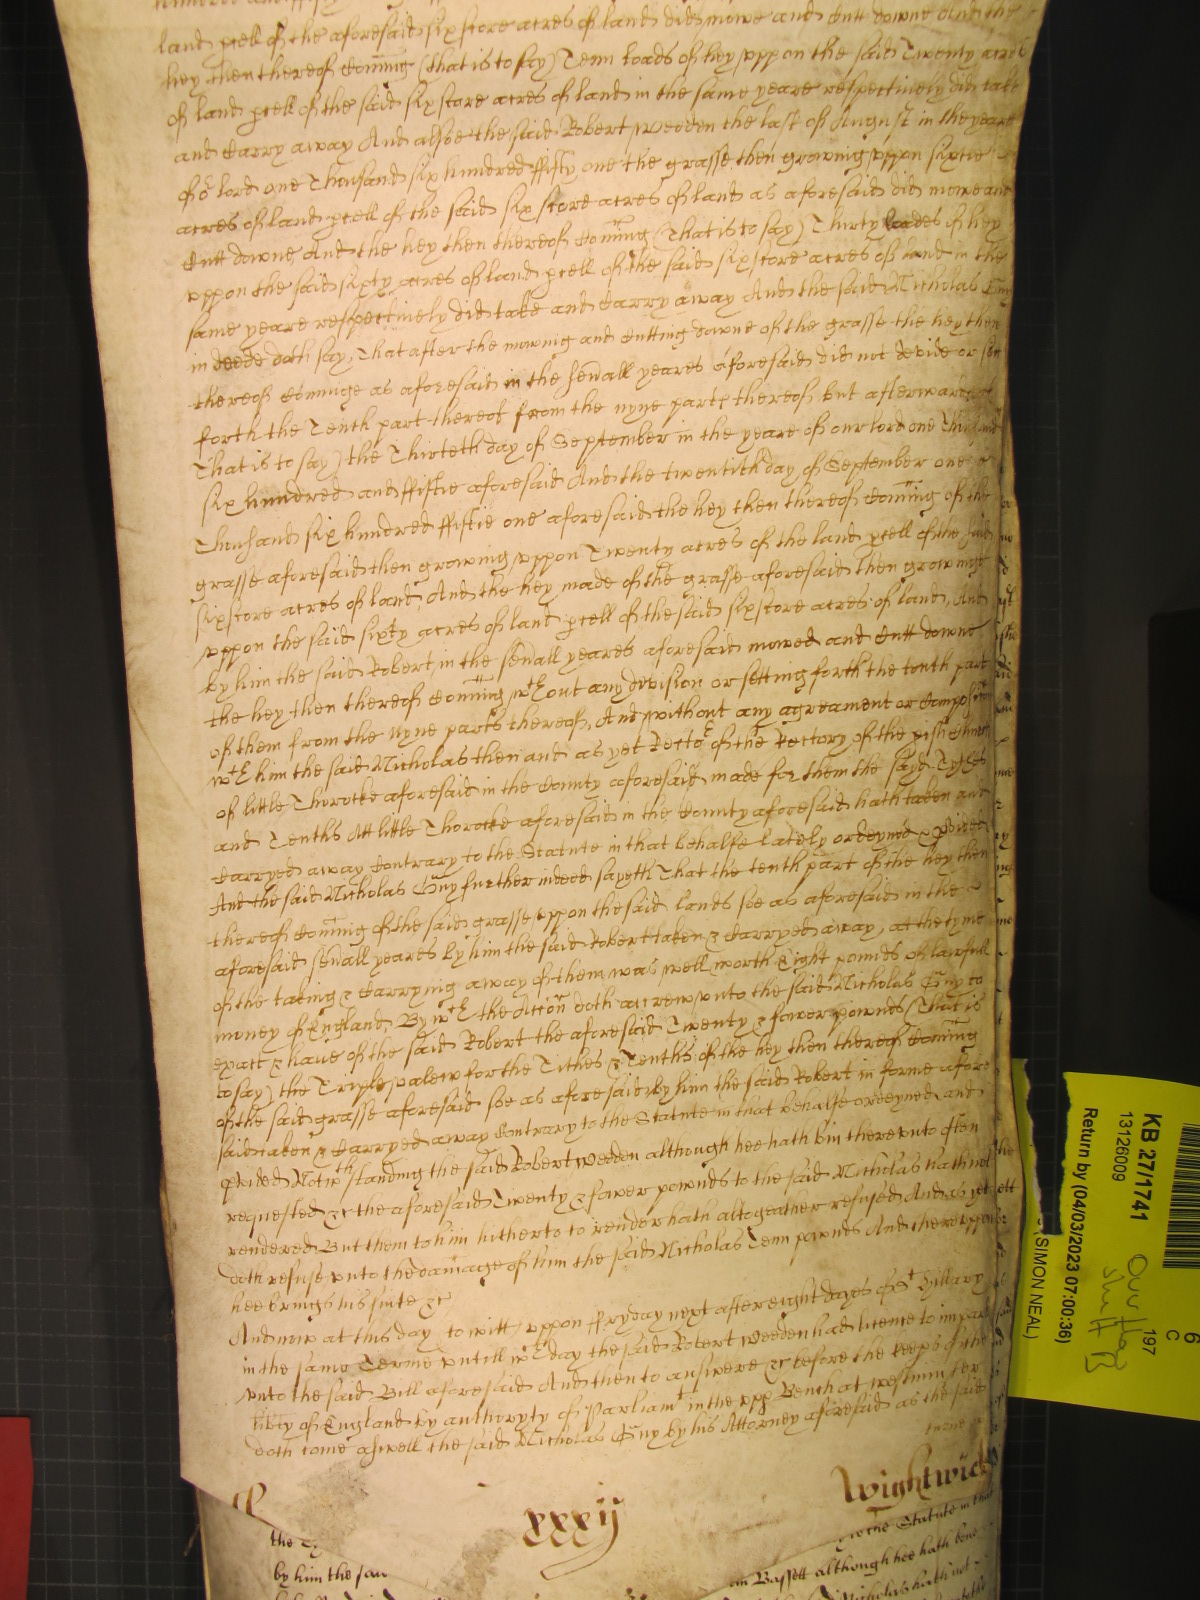 land pcell of the aforesaid six score acres of land did mowe and Cutt downe And the
hey then thereof Coming (that is to say) Tenn loads of hey uppon the said Twenty acres
of land pcell of the said six score acres of land in the same yeare respectively did take
and Carry away And alsoe the said Robert Weeden the last of August in the yeare
of or lord one Thousand six hundred ffifty one the grasse then growing uppon sixtie
acres of land pcell of the said six score acres of land as aforesaid did mowe and
Cutt downe And the hey then thereof Coming (That is to say) Thirty loades of hey
uppon the said sixty acres of land pcell of the said six score acres of land in the
same yeare respectively did take and Carry away And the said Nicholas Guy
in deede doth say, That after the mowing and Cutting downe of the grasse the hey then
thereof Cominge as aforesaid in the sevall yeares aforesaid did not devide or sett
forth the Tenth part thereof from the nyne parts thereof but afterwards
That is to say) the Thirteth day of September in the yeare of our lord one Thousand
six hundred and ffiftie aforesaid And the twentith day of September one
Thousand six hundred ffiftie one aforesaid the hey then thereof Coming of the
grasse aforesaid then growing uppon Twenty acres of the land pcell of the said
sixscore acres of land, And the hey made of the grasse aforesaid then growing
uppon the said sixty acres of land pcell of the said sixscore acres of land, And
by him the said Robert, in the sevall yeares aforesaid mowed and Cutt downe
the hey then thereof Coming wthout any devision or setting forth the tenth part
of them from the nyne parts thereof, And without any agreament or Composicon
wth him the said Nicholas then and as yet Rector of the Rectory of the pish Church
of little Thorocke aforesaid in the County aforesaid made for them the sayd Tythes
and Tenths Att little Thorocke aforesaid in the County aforesaid hath taken and
Carryed away Contrary to the Statute in that behalfe lately ordeyned & pvided
And the said Nicholas Guy further indeed sayeth That the tenth part of the hey then
thereof Coming of the said grasse uppon the said lands soe as aforesaid in the
aforesaid sevall yeares by him the said Robert taken & Carryed away, at the tyme
of the taking & Carrying away of them was well worth Eight pounds of lawfull
money of England, By wch the Accon doth accrew unto the said Nicholas Guy to
exact & have of the said Robert the aforesaid Twenty & fower pownds (That is
to say) the Triple valew for the Tithes & Tenths of the hey then thereof Coming
of the said grasse aforesaid soe as aforesaid by him the said Robert in forme afore
said taken & Carryed away Contrary to the Statute in that behalfe ordeyned and
pvided Notwthstanding the said Robert Weeden although hee hath bin thereunto often
requested &c the aforesaid Twenty & fower pownds to the said Nicholas hath not
rendered But them to him hitherto to render hath altogeather refused And as yet
doth refuse unto the damage of him the said Nicholas Tenn pownds And thereuppon
hee brings his suite &c
And now at this day to witt uppon ffryday next after eight dayes of St Hillary
in the same Terme untill wch day the said Robert Weeden had licence to imparl
unto the said Bill aforesaid And then to answere &c before the keeps of the
libty of England by authoryty of Parliamt in the upp Bench at Westminster
doth come aswell the said Nicholas Guy by his Attorney aforesaid as the said
xxxij
Wightwick
the
by him the said
the Statute in that
Bassett although hee hath bene
Nicholas hath not
KB 27/1741
13126009
Return by (04/03/2023 07:00:36)
(SIMON NEAL)
6
C
197